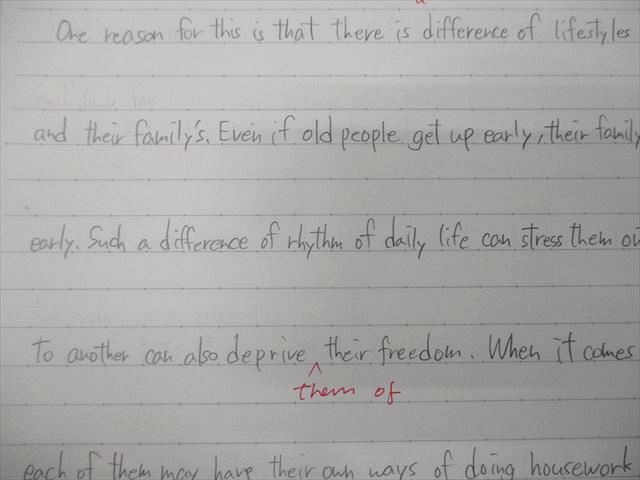 One reason for this is that there is difference of lifestyles
and their family's. Even if old people get up early, their family
early. Such a difference of rhythm of daily life can stress them
to another can also deprive ^ their freedom. When it comes
them of
each of them may have their own ways of doing housework